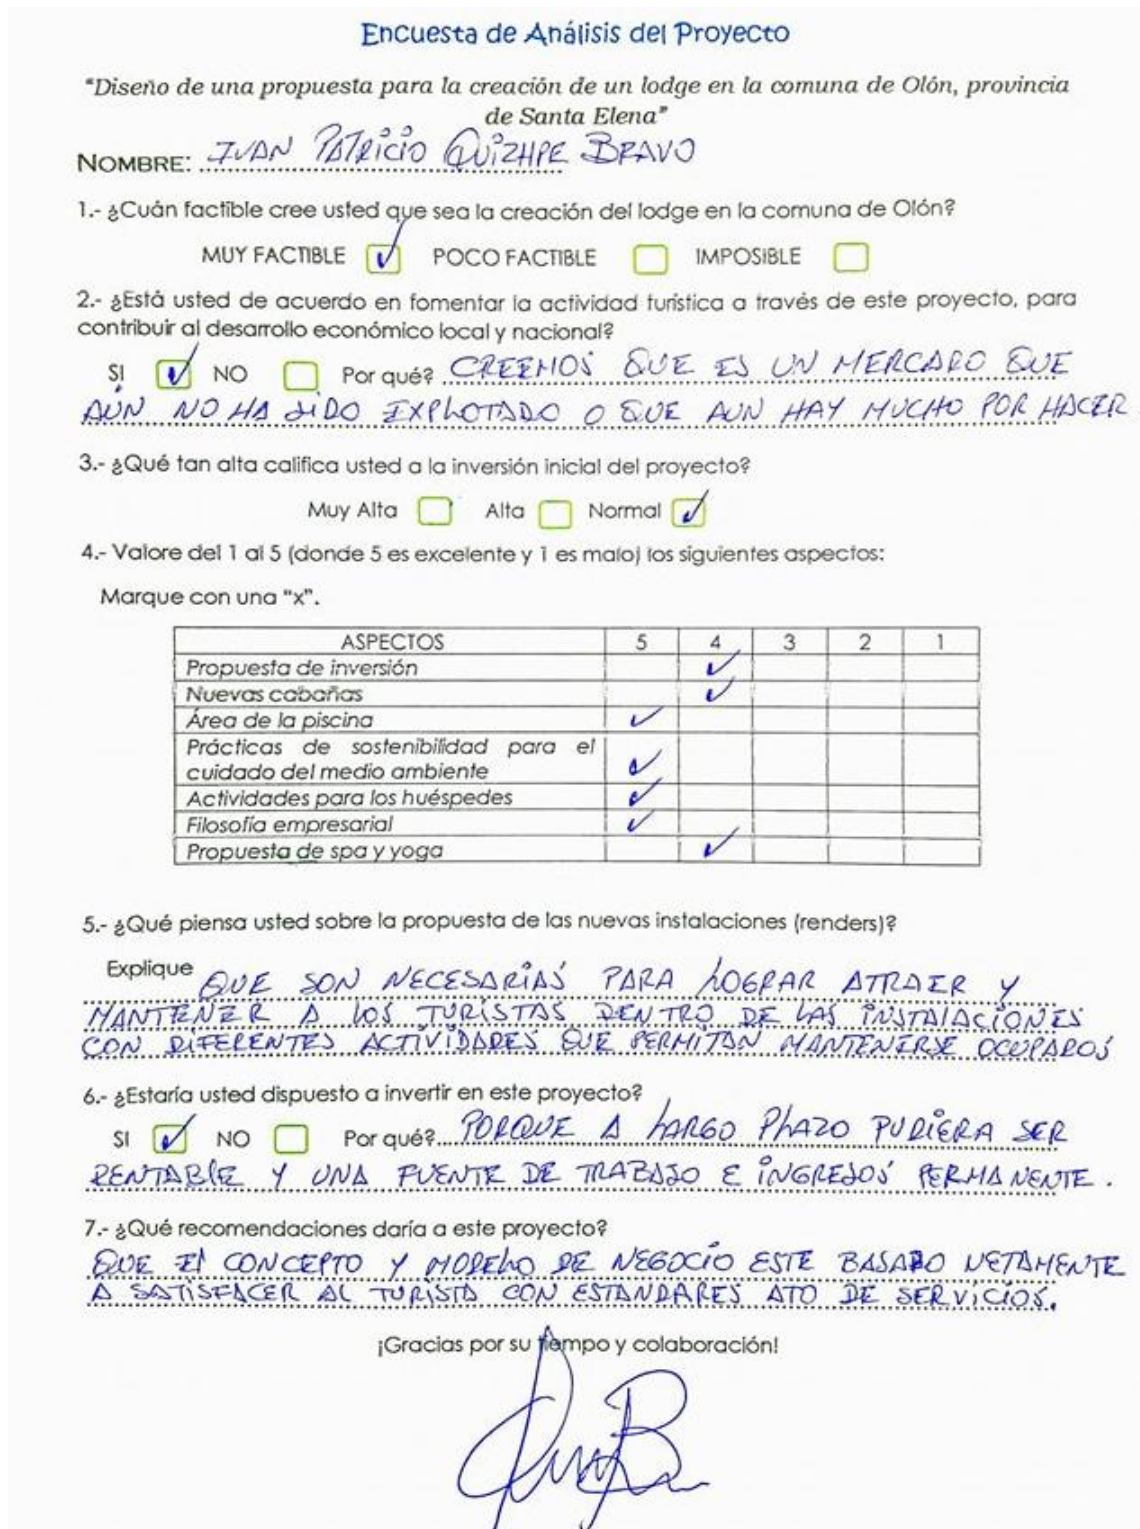 Encuesta de Análisis del Proyecto
"Diseño de una propuesta para la creación de un lodge en la comuna de Olón, provincia
de Santa Elena"
NOMBRE: IVAN PATRICIO QUIZHPE BRAVO
1.- ¿Cuán factible cree usted que sea la creación del lodge en la comuna de Olón?
MUY FACTIBLE ✓ POCO FACTIBLE IMPOSIBLE
2.- ¿Está usted de acuerdo en fomentar la actividad turística a través de este proyecto, para
contribuir al desarrollo económico local y nacional?
SI ✓ NO Por qué? CREEMOS QUE ES UN MERCADO QUE
AÚN NO HA SIDO EXPLOTADO O QUE AUN HAY MUCHO POR HACER
3.- ¿Qué tan alta califica usted a la inversión inicial del proyecto?
Muy Alta Alta Normal ✓
4.- Valore del 1 al 5 (donde 5 es excelente y 1 es malo) los siguientes aspectos:
Marque con una "x".
ASPECTOS 5 4 3 2 1
Propuesta de inversión ✓
Nuevas cabañas ✓
Área de la piscina ✓
Prácticas de sostenibilidad para el
cuidado del medio ambiente ✓
Actividades para los huéspedes ✓
Filosofía empresarial ✓
Propuesta de spa y yoga ✓
5.- ¿Qué piensa usted sobre la propuesta de las nuevas instalaciones (renders)?
Explique QUE SON NECESARIAS PARA LOGRAR ATRAER Y
MANTENER A LOS TURISTAS DENTRO DE LAS INSTALACIONES
CON DIFERENTES ACTIVIDADES QUE PERMITAN MANTENERSE OCUPADOS
6.- ¿Estaría usted dispuesto a invertir en este proyecto?
SI ✓ NO Por qué? PORQUE A LARGO PLAZO PUDIERA SER
RENTABLE Y UNA FUENTE DE TRABAJO E INGRESOS PERMANENTE.
7.- ¿Qué recomendaciones daría a este proyecto?
QUE EL CONCEPTO Y MODELO DE NEGOCIO ESTE BASADO NETAMENTE
A SATISFACER AL TURISTA CON ESTANDARES ATO DE SERVICIOS.
¡Gracias por su tiempo y colaboración!